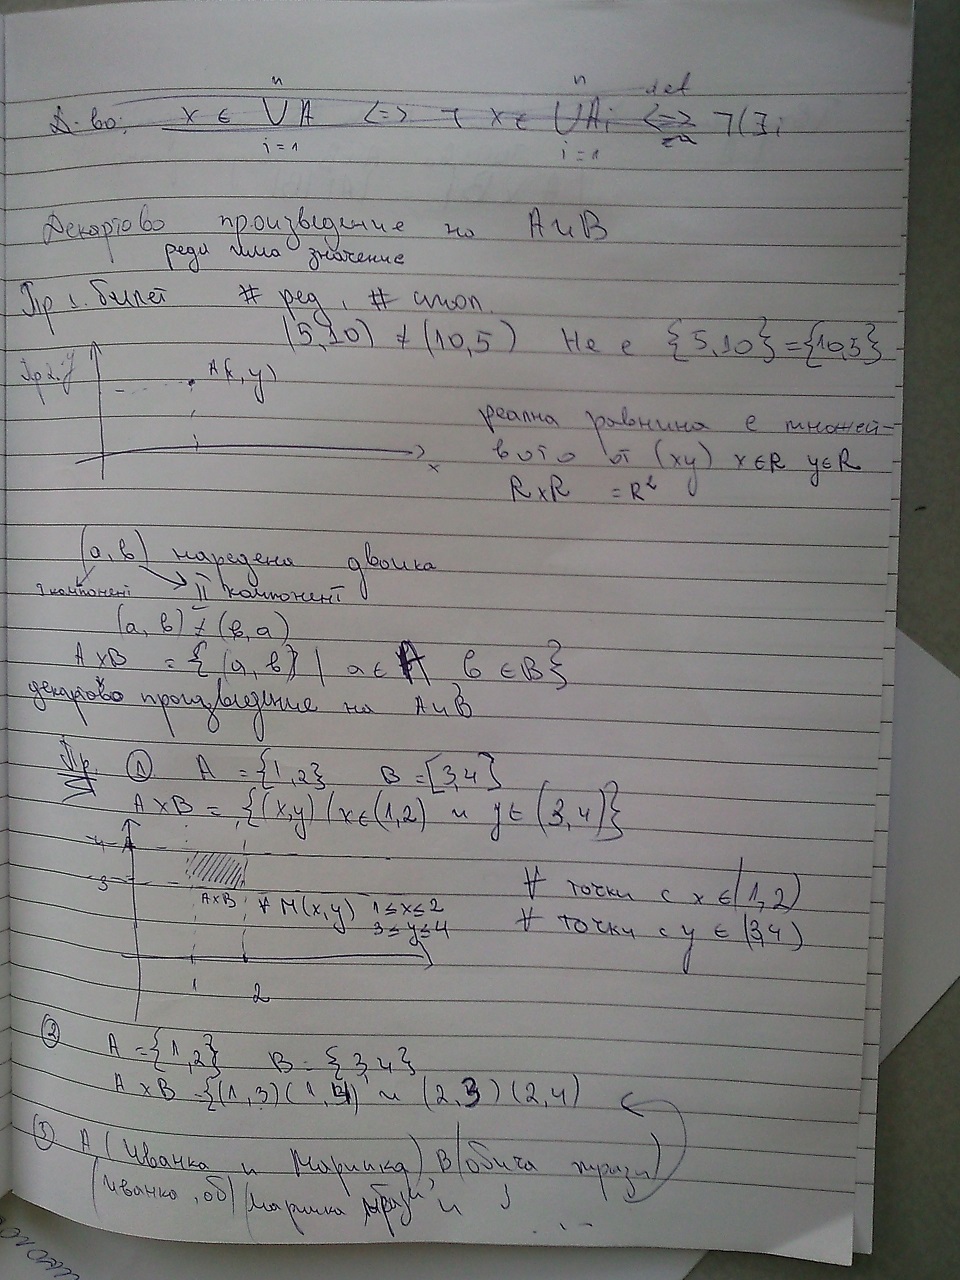 Д-во: x ∈ n ⋃ i=1 A <=> ¬ x ∈ n ⋃ i=1 Ai def <=> ¬(∃i
Декартово произведение на A и B
реди има значение
Пр 1. билет # ред, # стол.
(5,10) ≠ (10,5) Не е {5,10} = {10,5}
Пр 2. y
A(x, y)
x
реална равнина е множест-
вото от (xy) x∈R y∈R
R x R = R²
(a, b) наредена двойка
I компонент II компонент
(a, b) ≠ (b, a)
A x B = {(a, b) | a ∈ A b ∈ B}
декартово произведение на A и B
Пр. ① A = {1,2} B = [3,4]
A x B = {(x,y) (x∈(1,2) и y∈(3,4)}
4
3
A x B ∀ M(x,y) 1≤x≤2
3≤y≤4
1 2
∀ точки с x ∈ (1,2)
∀ точки с y ∈ (3,4)
② A = {1,2} B = {3,4}
A x B = {(1,3) (1,4) и (2,3) (2,4)
③ A (Иванка и Марийка) B (обича мрази)
(Иванка, об) (марийка мрази) и
...